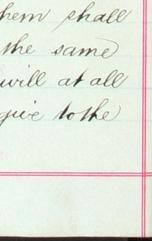 hem shall
the same
will at all
give to the